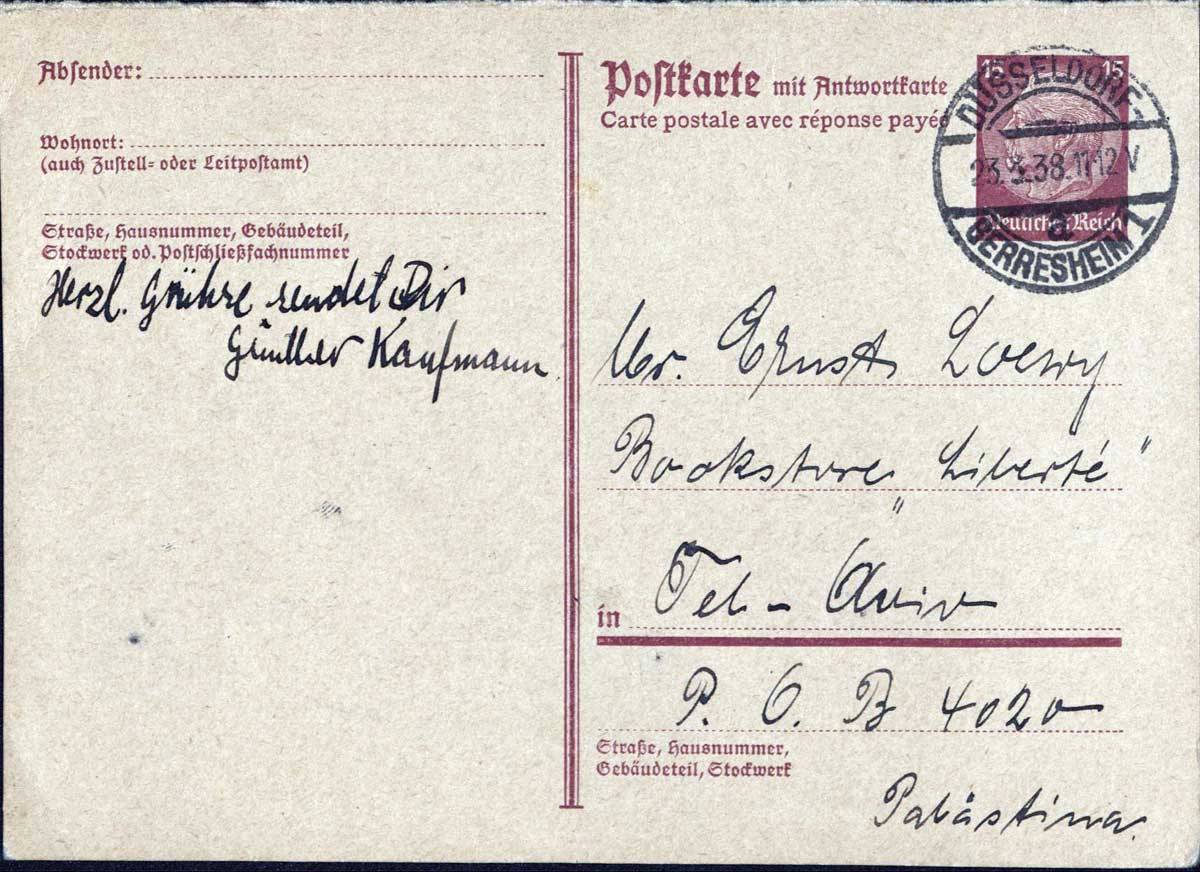 Absender:
Wohnort:
(auch Zustell- oder Leitpostamt)
Straße, Hausnummer, Gebäudeteil,
Stockwerk od. Postschließfachnummer
Herzl. Grühse sendet Dir
Günther Kaufmann
Postkarte mit Antwortkarte
Carte postale avec réponse payée
15 15
Deutsches Reich
DÜSSELDORF-
23. .38.11-12 V
a
GERRESHEIM 1
Mr. Ernst Loewy
Bookstore „Liberté“
in Tel-Aviv
P. O. B 4020
Straße, Hausnummer,
Gebäudeteil, Stockwerk
Palästina.